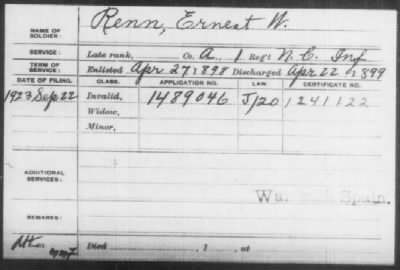 Renn, Ernest W.
NAME OF SOLDIER:
SERVICE: Late rank, Co. A, 1 Reg't N.C. Inf
TERM OF SERVICE: Enlisted Apr 27, 1898 Discharged Apr 22, 1899
DATE OF FILING. CLASS. APPLICATION NO. LAW. CERTIFICATE NO.
1923 Sep 22 Invalid, 1489046 J/20 1241122
Widow,
Minor,
ADDITIONAL SERVICES:
War with Spain.
REMARKS:
Died , 1 , at